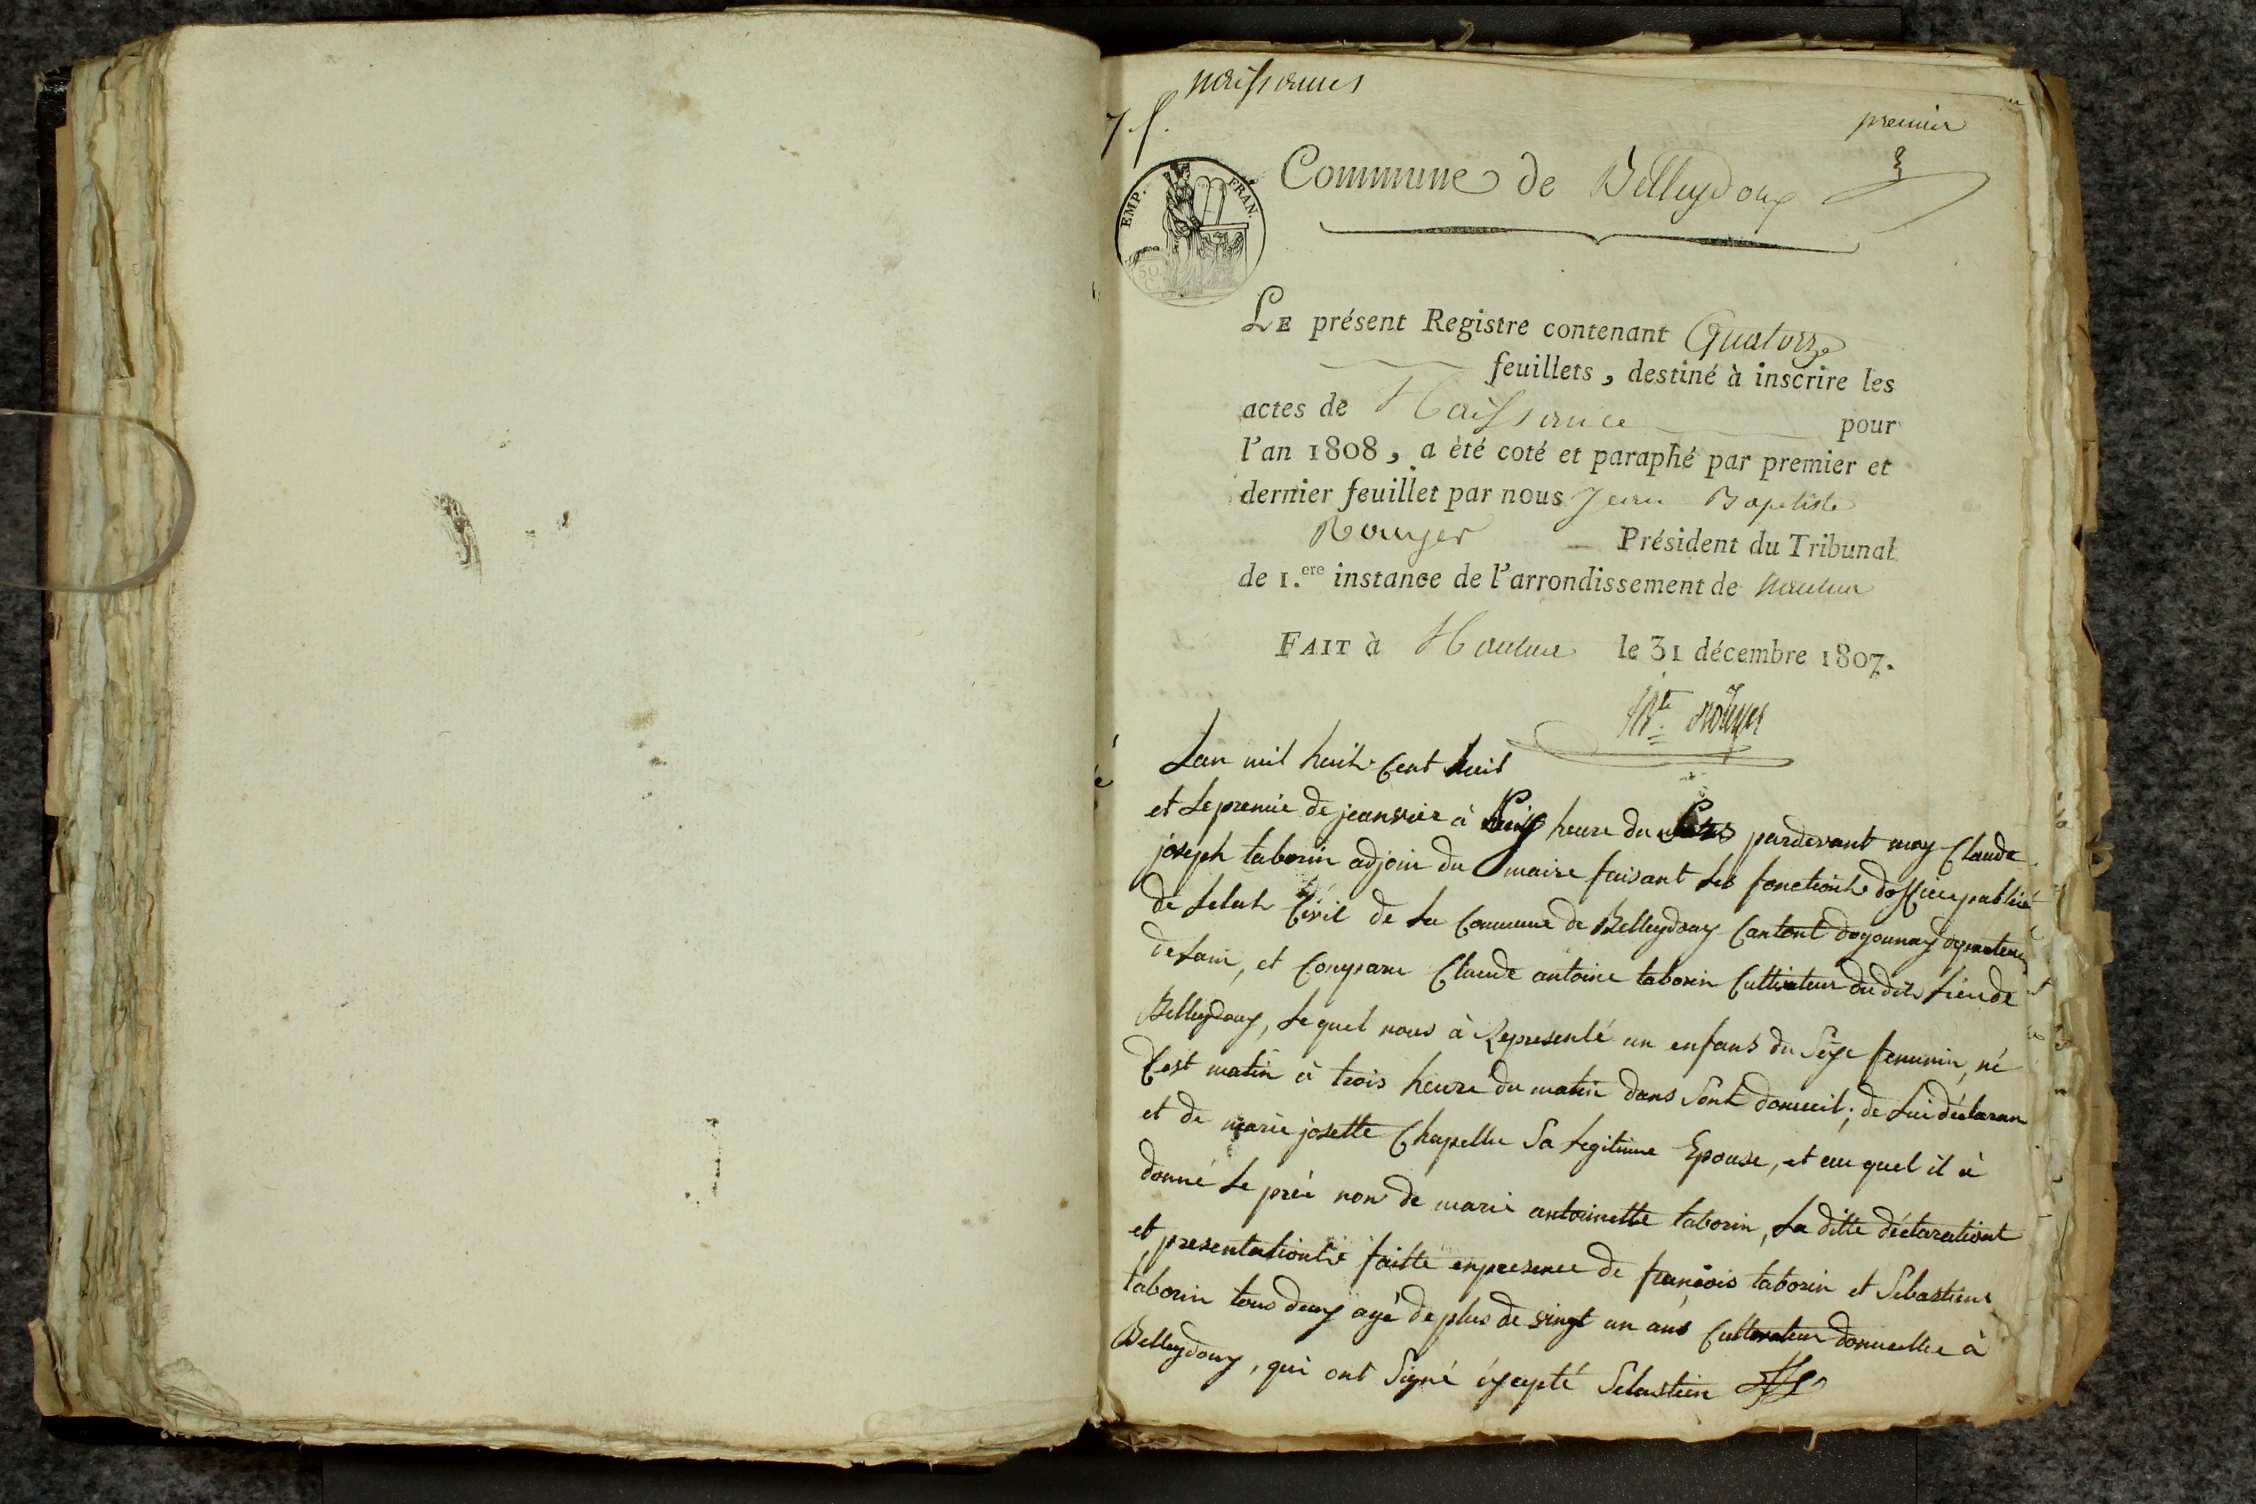 naissances
7 f.
premier
Commune de Belleydoux
EMP. FRAN.
50
LE présent Registre contenant Quatorze
feuillets, destiné à inscrire les
actes de Naissance pour
l'an 1808, a èté coté et paraphé par premier et
dernier feuillet par nous Jean Baptiste
Rouyer Président du Tribunal
de 1.ere instance de l'arrondissement de nantua
FAIT à Nantua le 31 décembre 1807.
Bte Rouyer
Lan mil huit Cent huit
et le premie de jeanvier à heure du pardevant moy Claude
joseph taborin adjoin du maire faisant les fonctiont dofficier publiet
de Letat Cévil de La Commune de Belleydoux Cantont doyonnax
de Lain, et Comparu Claude antoine taborin Cultivateur du dit Lieu de
Belleydoux, Le quel nous à Representé un enfans du Sexe feminin, né
Cest matin à trois heure du matin dans Sont domicil; de Lui déclaran
et de marie josette Chapellu Sa Legitime Epouse, et au quel il à
donné Le pré non de marie antoinette taborin, La ditte déclarationt
et presentationt faitte enpresence de francois taborin et Sebastient
taborin tous deux agé de plus de vingt un ans Cultivateur domicillie à
Belleydoux, qui ont Signé éxcepté Sebastien